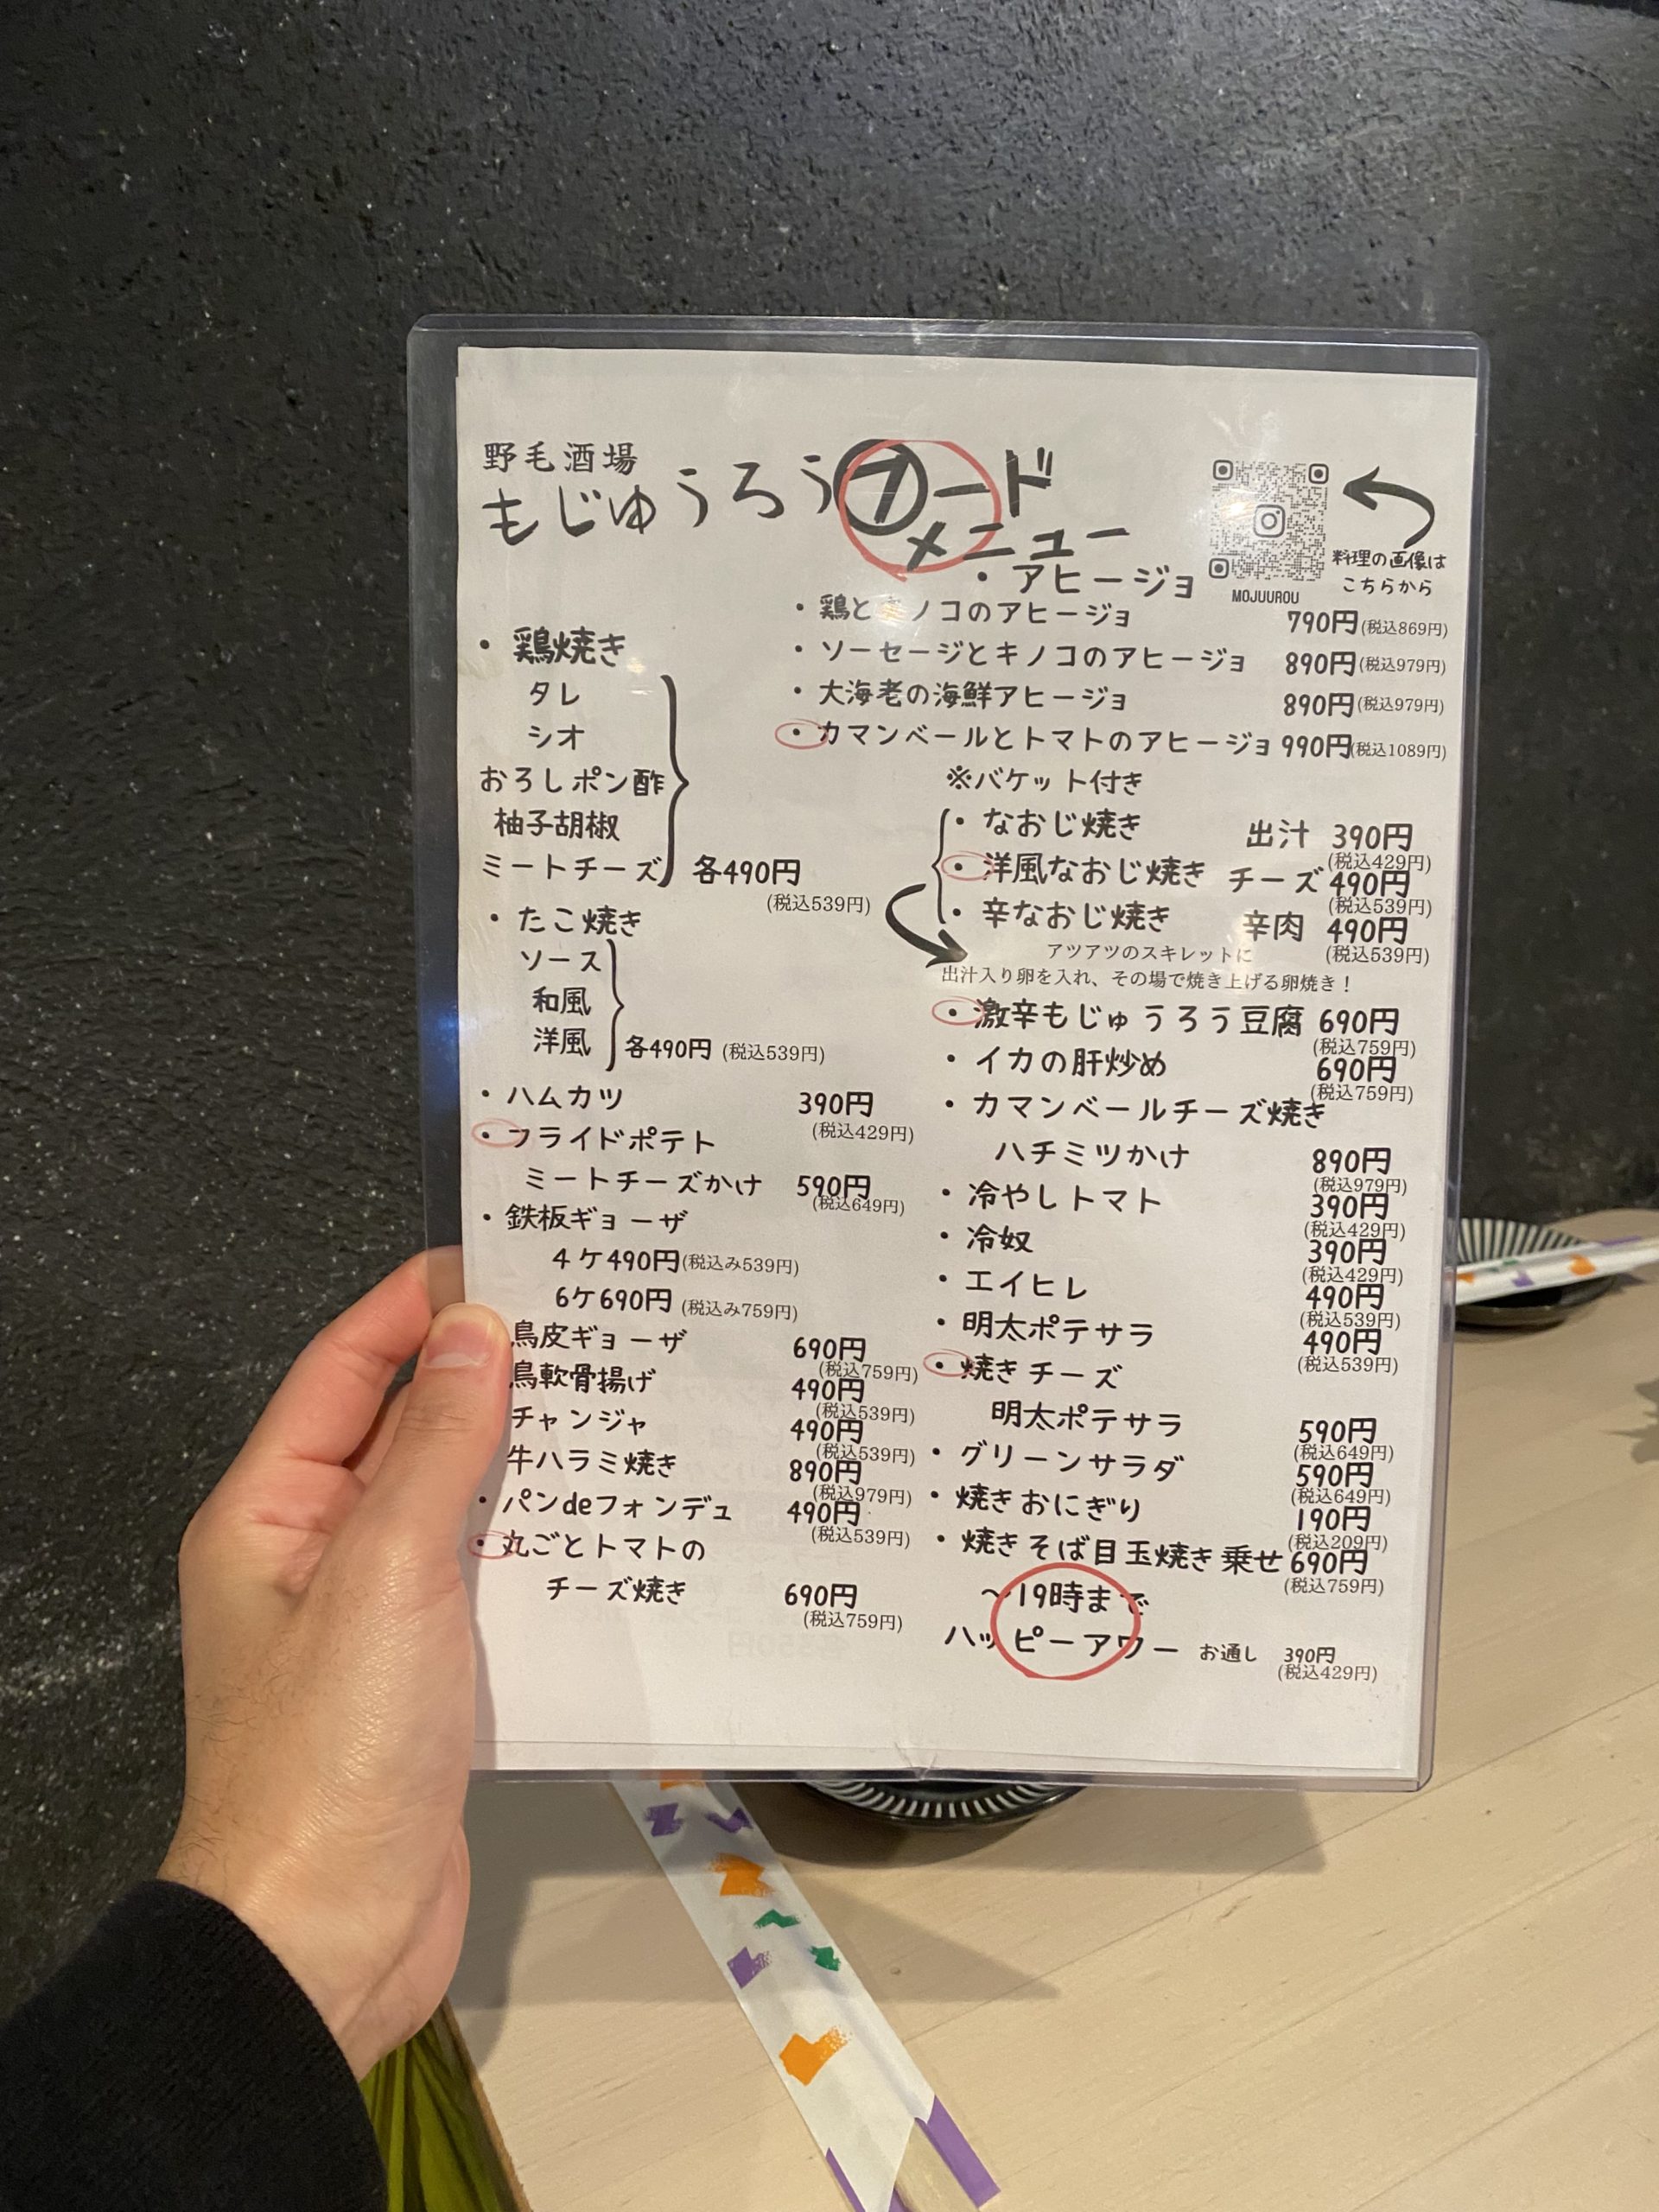 野毛酒場
もじゅうろうフード
メニュー
料理の画像は
こちらから
MOJUUROU
・鶏焼き
タレ
シオ
おろしポン酢
柚子胡椒
ミートチーズ 各490円
(税込539円)
・たこ焼き
ソース
和風
洋風 各490円 (税込539円)
・ハムカツ 390円
(税込429円)
・フライドポテト
ミートチーズかけ 590円
(税込649円)
・鉄板ギョーザ
4ケ490円(税込み539円)
6ケ690円 (税込み759円)
鳥皮ギョーザ 690円
(税込759円)
鳥軟骨揚げ 490円
(税込539円)
チャンジャ 490円
(税込539円)
牛ハラミ焼き 890円
(税込979円)
・パンdeフォンデュ 490円
(税込539円)
・丸ごとトマトの
チーズ焼き 690円
(税込759円)
・アヒージョ
・鶏とキノコのアヒージョ 790円(税込869円)
・ソーセージとキノコのアヒージョ 890円(税込979円)
・大海老の海鮮アヒージョ 890円(税込979円)
・カマンベールとトマトのアヒージョ 990円(税込1089円)
※バケット付き
・なおじ焼き 出汁 390円
(税込429円)
・洋風なおじ焼き チーズ 490円
(税込539円)
・辛なおじ焼き 辛肉 490円
(税込539円)
アツアツのスキレットに
出汁入り卵を入れ、その場で焼き上げる卵焼き！
・激辛もじゅうろう豆腐 690円
(税込759円)
・イカの肝炒め 690円
(税込759円)
・カマンベールチーズ焼き
ハチミツかけ 890円
(税込979円)
・冷やしトマト 390円
(税込429円)
・冷奴 390円
(税込429円)
・エイヒレ 490円
(税込539円)
・明太ポテサラ 490円
(税込539円)
・焼きチーズ
明太ポテサラ 590円
(税込649円)
・グリーンサラダ 590円
(税込649円)
・焼きおにぎり 190円
(税込209円)
・焼きそば目玉焼き乗せ 690円
(税込759円)
〜19時まで
ハッピーアワー お通し 390円
(税込429円)